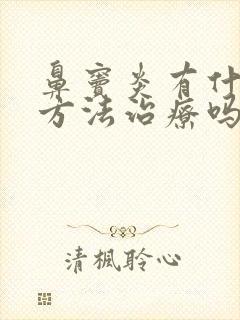 鼻窦炎有什
方法治疗吗
清楓聆心